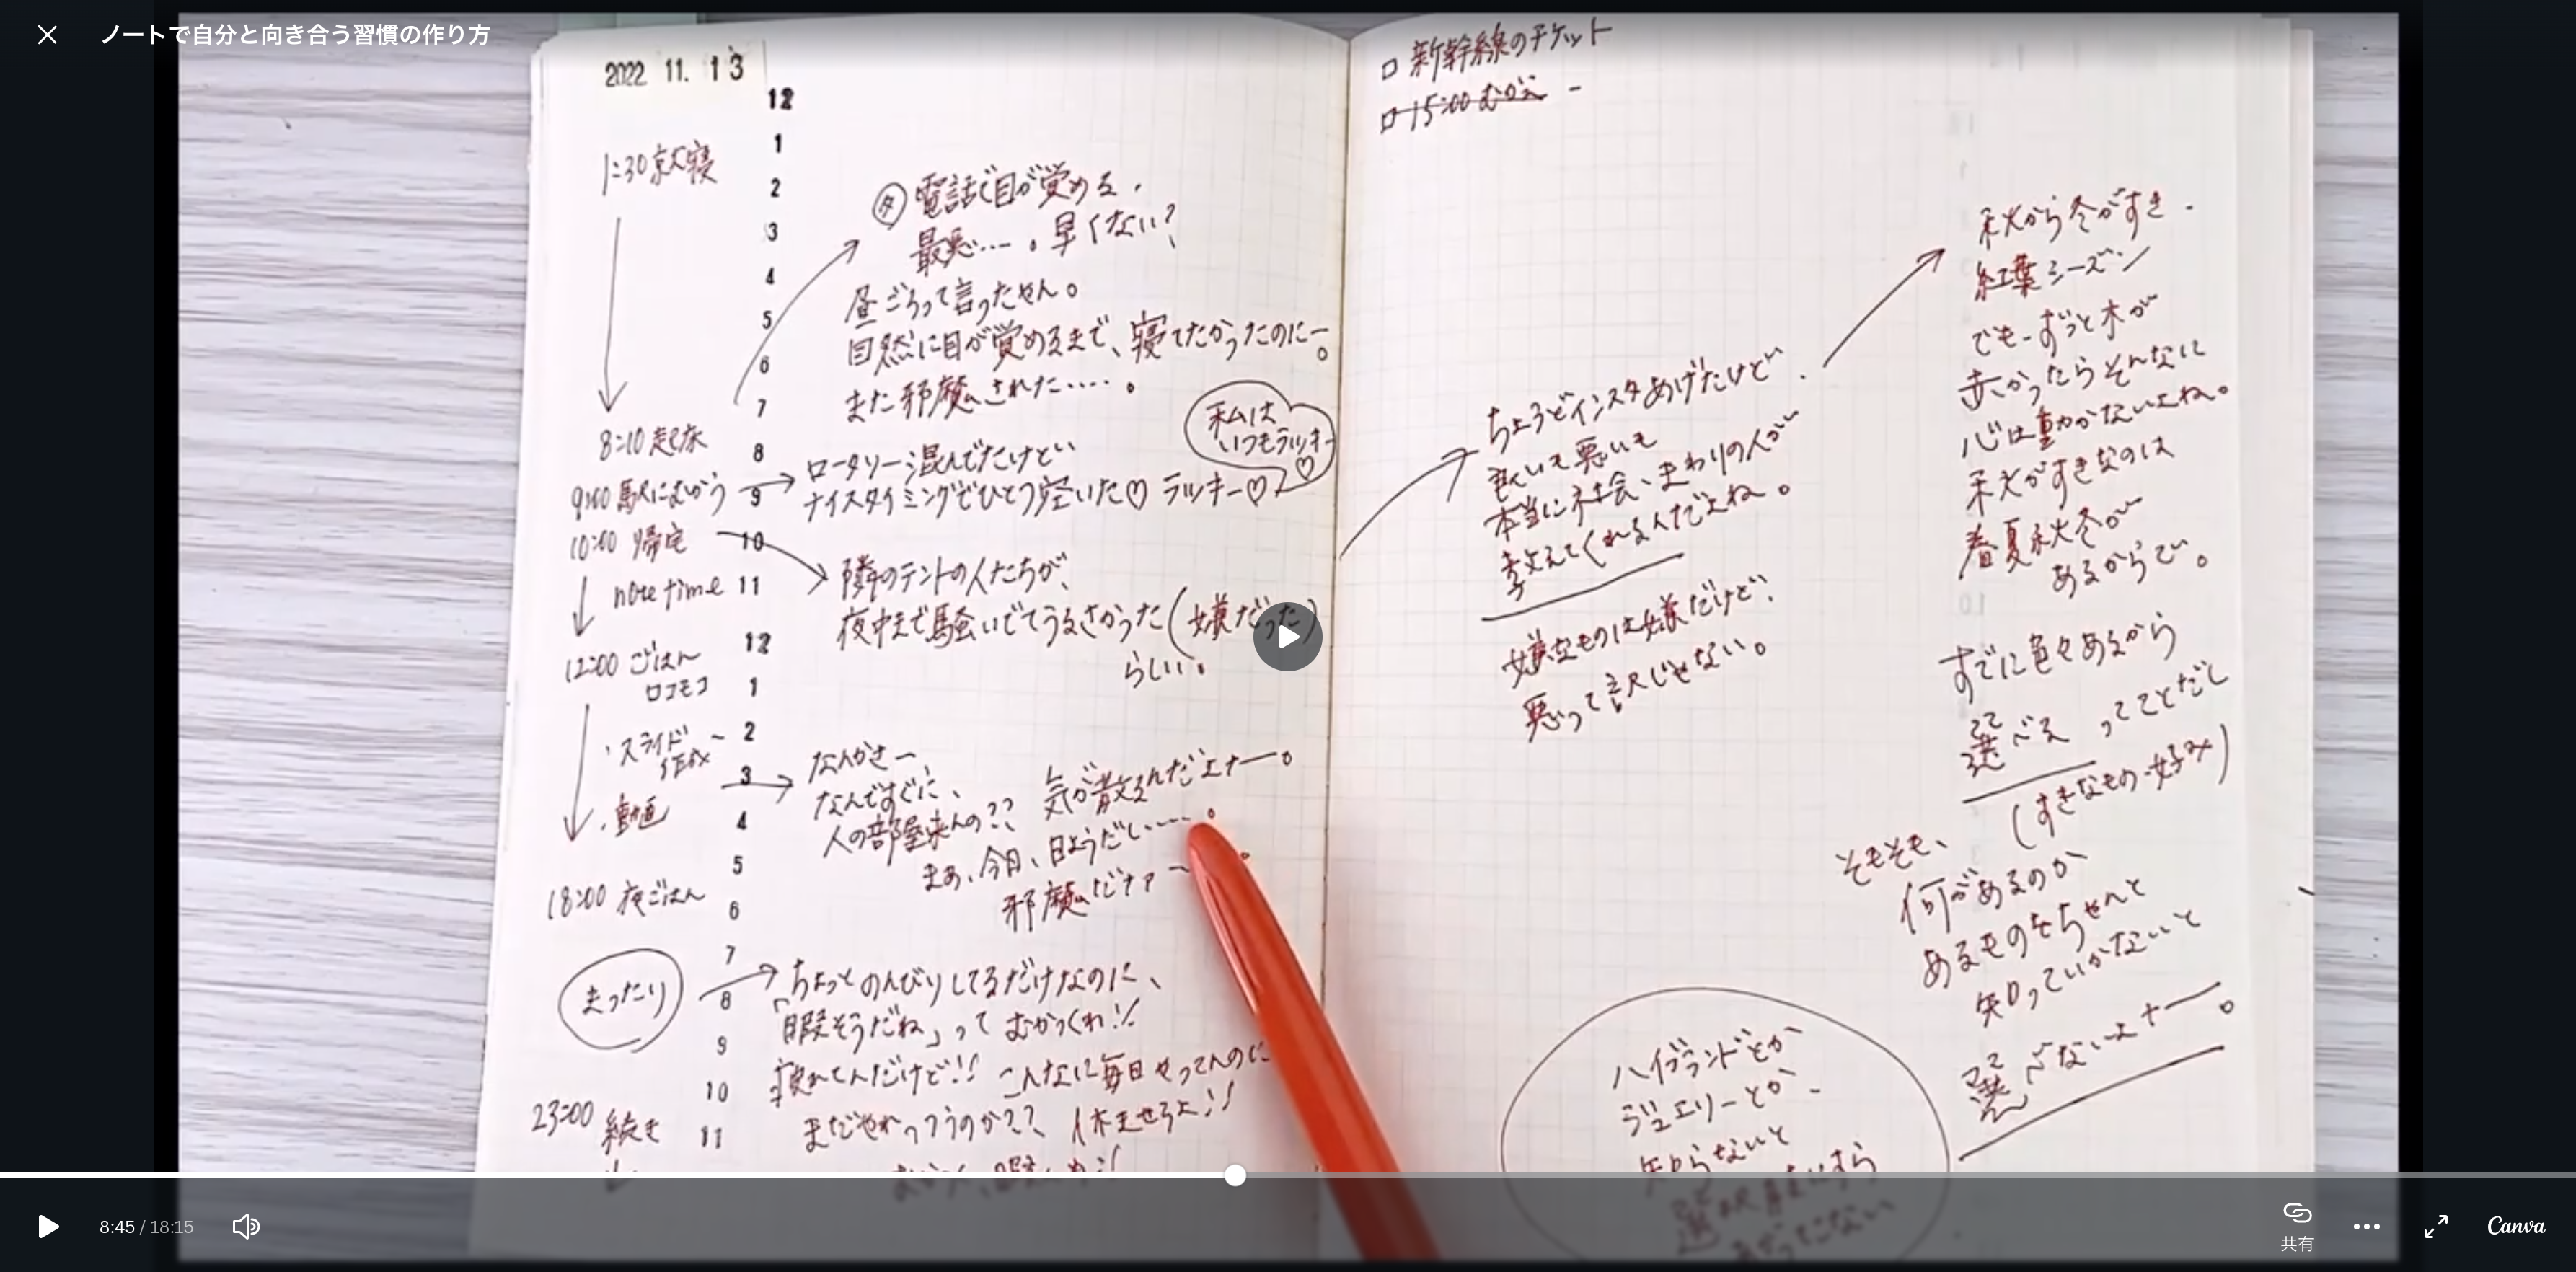 ノートで自分と向き合う習慣の作り方
2022 11. 13
12
1
2
3
4
5
6
7
8
9
10
11
12
1
2
3
4
5
6
7
8
9
10
11
1:30 就寝
8:10 起床
9:00 駅にむかう
10:00 帰宅
note time
12:00 ごはん
ロコモコ
・スライド
作成
・動画
18:00 夜ごはん
まったり
23:00 続き
電話で目が覚める.
最悪…。早くない?
昼ごろって言ったやん。
自然に目が覚めるまで、寝てたかったのにー。
また邪魔された…。
ロータリー混んでたけど
ナイスタイミングでひとつ空いた♡ ラッキー♡
私は
いつもラッキー
♡
隣のテントの人たちが、
夜中まで騒いでてうるさかった(嫌だった)
らしい。
なんかさー
なんですぐに、
人の部屋来んの?? 気が散るんだよナー。
まあ、今日、日ようだし…。
邪魔だナァー。
ちょっとのんびりしてるだけなのに、
「暇そうだね」って むかつくわ!!
疲れてんだけど!! こんなに毎日やってんのに
まだやれっつうのか?? 休ませろよ!!
□ 新幹線のチケット
□ 15:00 むかえ
ちょうどインスタあげたけど
良いも悪いも
本当に社会、まわりの人が
教えてくれるんだよね。
嫌なものは嫌だけど、
悪って訳じゃない。
秋から冬がすき.
紅葉シーズン
でも-ずっと木が
赤かったらそんなに
心は動かないよね。
秋がすきなのは
春夏秋冬が
あるからで。
すでに色々あるから
選べる ってことだし
(すきなもの・好み)
そもそも、
何があるのか
あるものをちゃんと
知っていかないと
選べないよナー。
ハイブランドとか
ジュエリーとか、
知らないと
8:45 / 18:15
共有
Canva